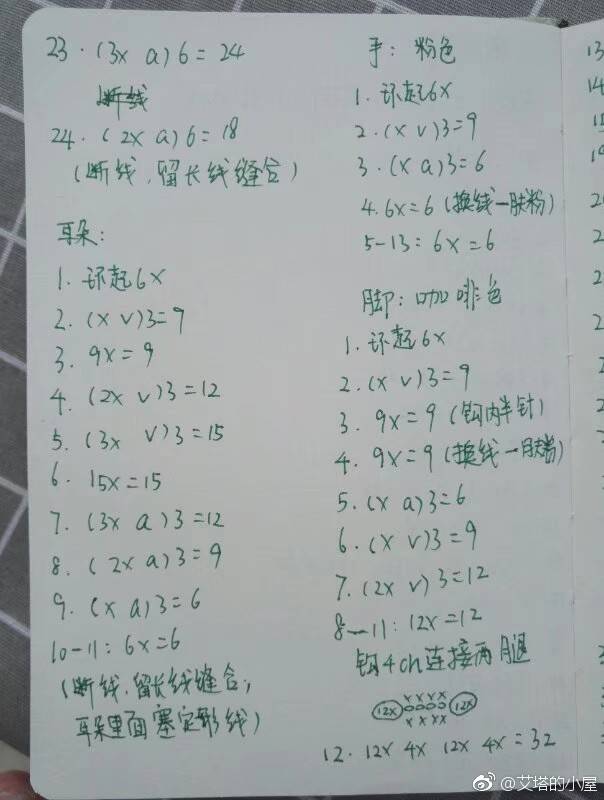 23. (3x a) 6 = 24
断线
24. (2x a) 6 = 18
(断线、留长线缝合)
耳朵:
1. 环起6x
2. (x v)3=9
3. 9x=9
4. (2x v)3=12
5. (3x v)3=15
6. 15x=15
7. (3x a)3=12
8. (2x a)3=9
9. (x a)3=6
10-11: 6x=6
(断线、留长线缝合,
耳朵里面塞定形线)
手: 粉色
1. 环起6x
2. (x v)3=9
3. (x a)3=6
4. 6x=6 (换线-肤粉)
5-13: 6x=6
脚: 咖啡色
1. 环起6x
2. (x v)3=9
3. 9x=9 (钩内半针)
4. 9x=9 (换线-肤粉)
5. (x a)3=6
6. (x v)3=9
7. (2x v)3=12
8-11: 12x=12
钩4ch连接两腿
xxxx
12x 12x
xxxx
12. 12x 4x 12x 4x = 32
13
14
@艾塔的小屋